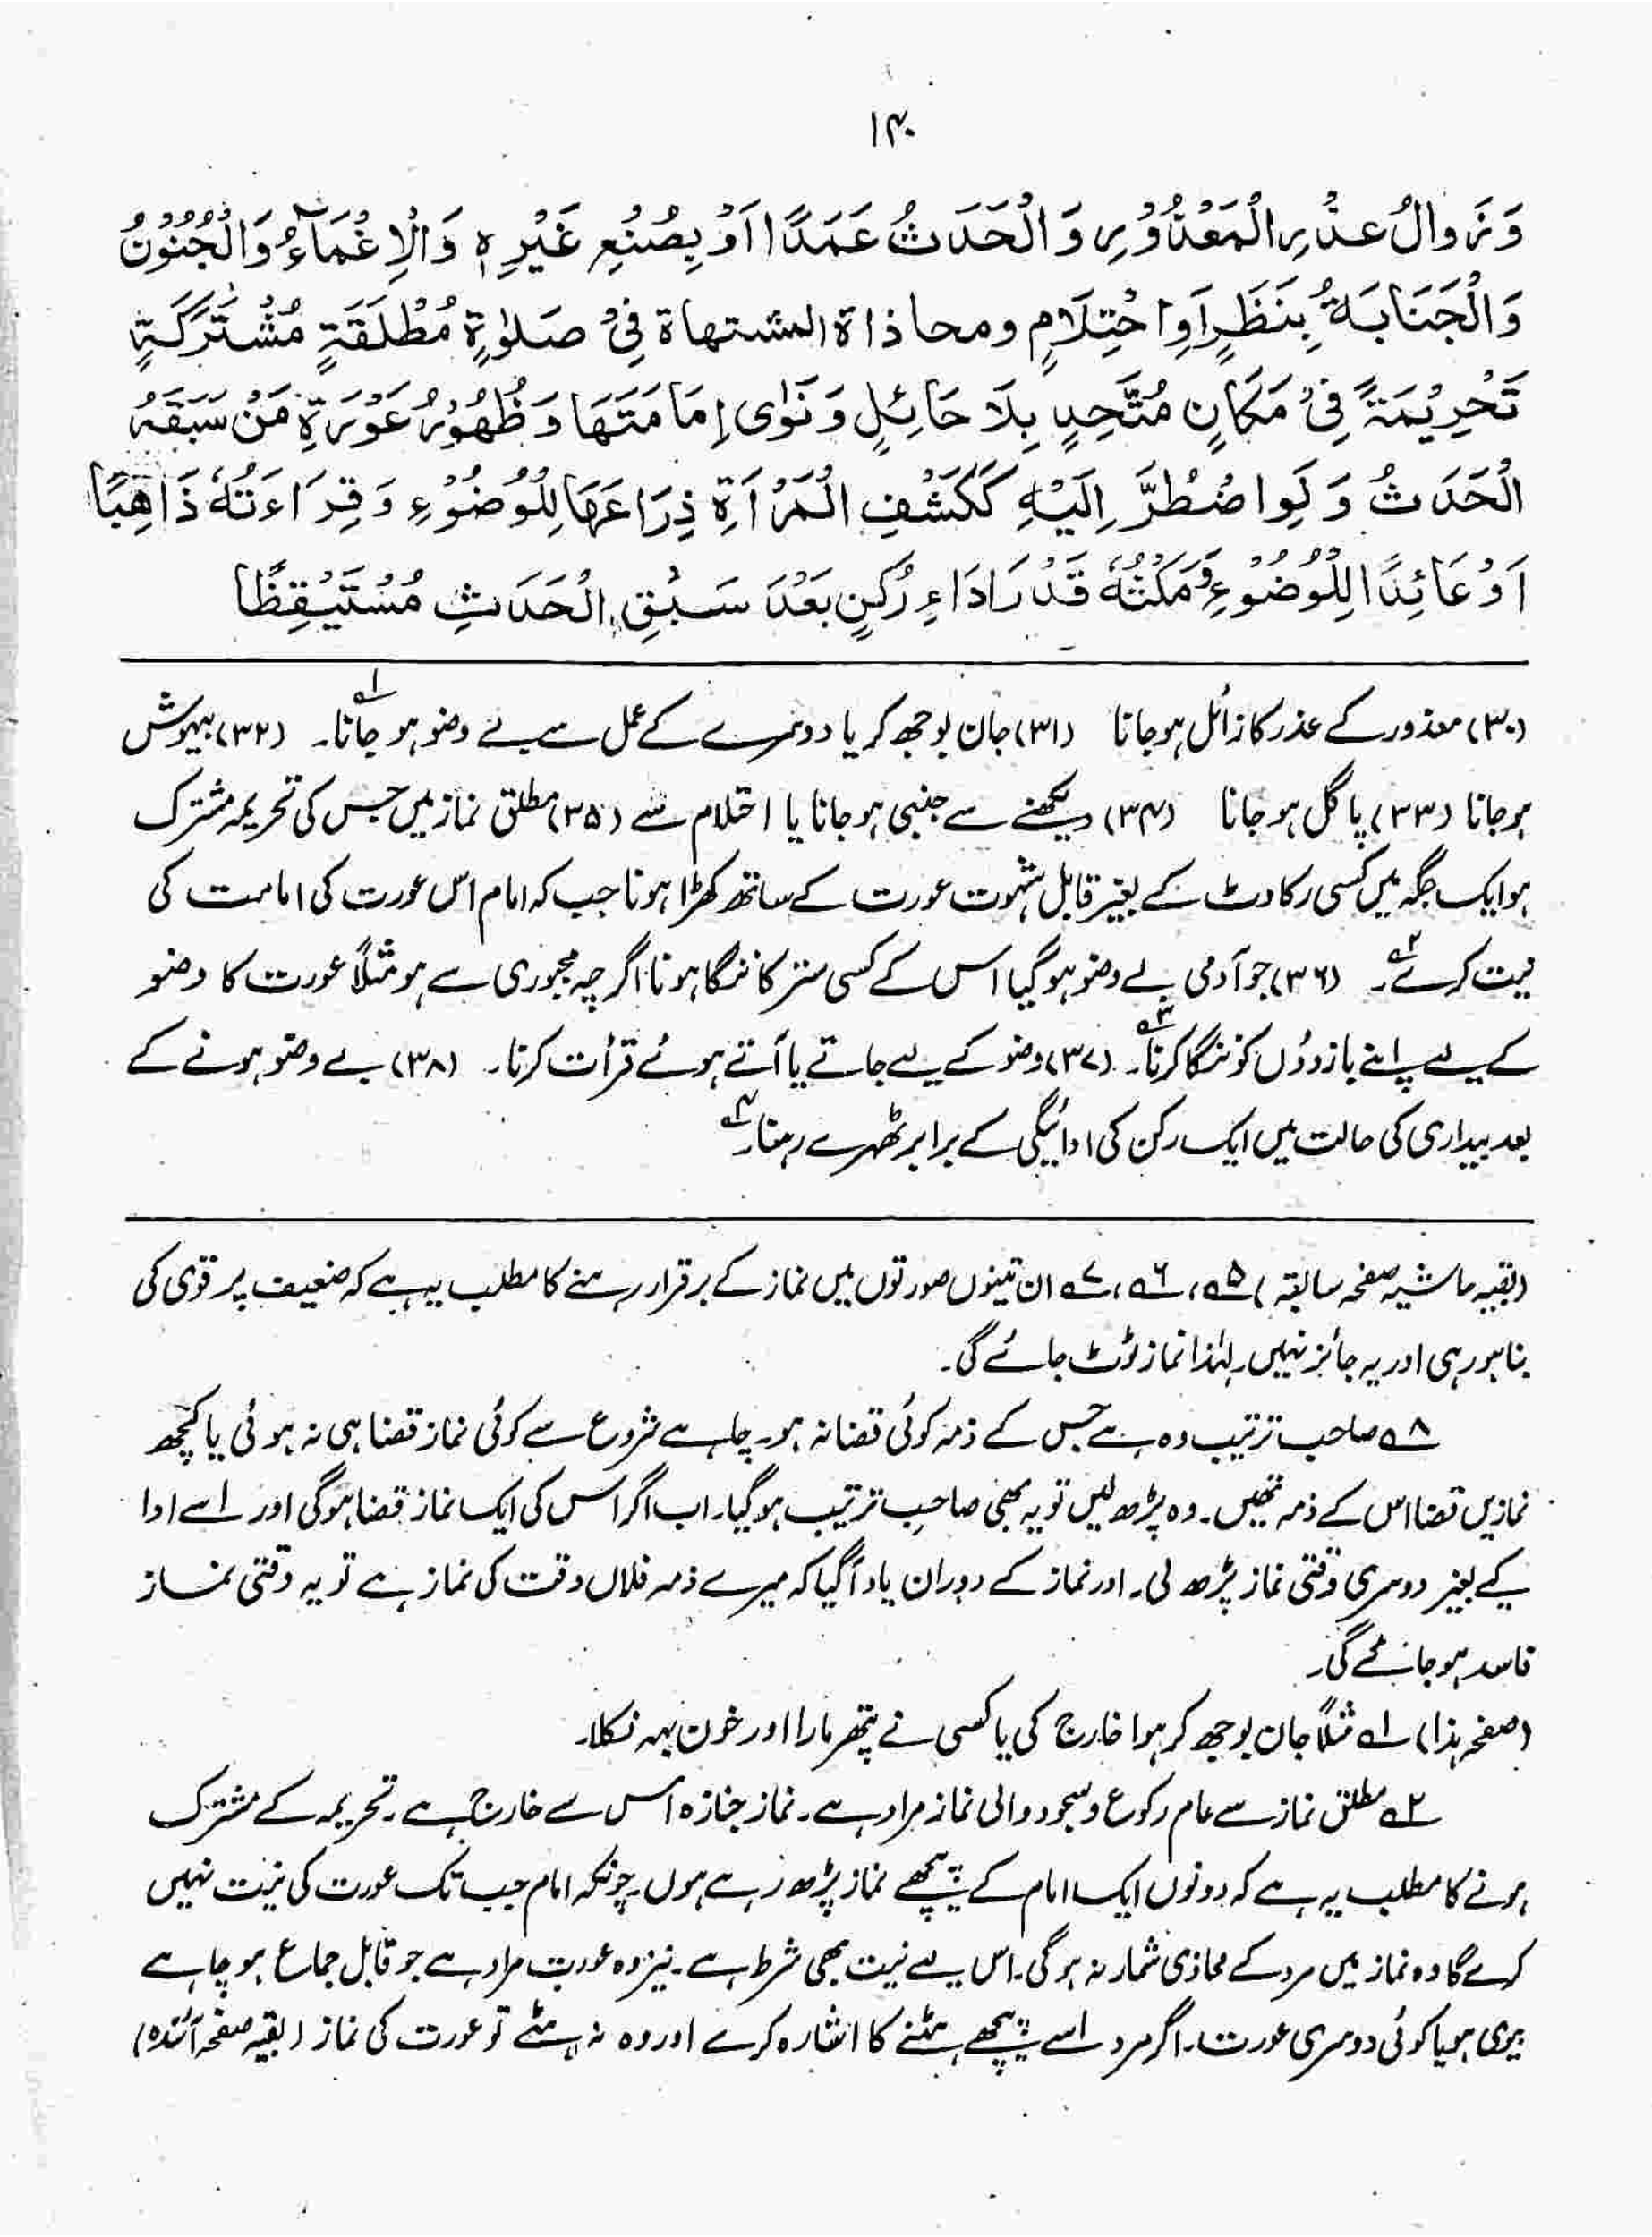 ۱۴۰
وَزَوالُ عذْرِ الْمَعْذُوْرِ وَالْحَدَثُ عَمَدًا اَوْ بِصُنْعِ غَيْرِهٖ وَالْاِغْمَآءُ وَالْجُنُوْنُ
وَالْجَنَابَةُ بِنَظَرٍ اَوِ احْتِلَامٍ ومحاذاة المشتهاة فِیْ صَلوٰةٍ مُطْلَقَةٍ مُشْتَرَكَةٍ
تَحْرِيْمَةً فِیْ مَكَانٍ مُتَّحِدٍ بِلَا حَائِلٍ وَنَوٰى اِمَامَتَهَا وَظُهُوْرُ عَوْرَةِ مَنْ سَبَقَهُ
الْحَدَثُ وَلَوِ اضْطُرَّ اِلَيْهِ كَكَشْفِ الْمَرْاَةِ ذِرَاعَهَا لِلْوُضُوْءِ وَقِرَاءَتُهٗ ذَاهِبًا
اَوْ عَائِدًا لِلْوُضُوْءِ وَمَكْثُهٗ قَدْرَ اَدَاءِ رُكْنٍ بَعْدَ سَبْقِ الْحَدَثِ مُسْتَيْقِظًا
(۳۰) معذور کے عذر کا زائل ہو جانا (۳۱) جان بوجھ کر یا دوسرے کے عمل سے بے وضو ہو جانا۔۱؎ (۳۲) بیہوش
ہو جانا (۳۳) پاگل ہو جانا (۳۴) دیکھنے سے جنبی ہو جانا یا احتلام سے (۳۵) مطلق نماز میں جس کی تحریمہ مشترک
ہو ایک جگہ میں کسی رکاوٹ کے بغیر قابل شہوت عورت کے ساتھ کھڑا ہونا جب کہ امام اس عورت کی امامت کی
نیت کرے۲؎۔ (۳۶) جو آدمی بے وضو ہو گیا اس کے کسی ستر کا ننگا ہونا اگرچہ مجبوری سے ہو مثلًا عورت کا وضو
کے لیے اپنے بازوؤں کو ننگا کرنا۳؎۔ (۳۷) وضو کے لیے جاتے یا آتے ہوئے قرأت کرنا۔ (۳۸) بے وضو ہونے کے
بعد بیداری کی حالت میں ایک رکن کی ادائیگی کے برابر ٹھہرے رہنا۔۴؎
(بقیہ حاشیہ صفحہ سابقہ) ۵؎، ۶؎، ۷؎ ان تینوں صورتوں میں نماز کے برقرار رہنے کا مطلب یہ ہے کہ ضعیف پر قوی کی
بنا ہو رہی اور یہ جائز نہیں۔ لہٰذا نماز ٹوٹ جائے گی۔
۸؎ صاحب ترتیب وہ ہے جس کے ذمہ کوئی قضا نہ ہو۔ چاہے شروع سے کوئی نماز قضا ہی نہ ہوئی یا کچھ
نمازیں قضا اس کے ذمہ تھیں۔ وہ پڑھ لیں تو یہ بھی صاحبِ ترتیب ہو گیا۔ اب اگر اس کی ایک نماز قضا ہوگی اور اسے ادا
کیے بغیر دوسری وقتی نماز پڑھ لی۔ اور نماز کے دوران یاد آگیا کہ میرے ذمہ فلاں وقت کی نماز ہے تو یہ وقتی نماز
فاسد ہو جائے گی۔
(صفحہ ہذا) ۱؎ مثلًا جان بوجھ کر ہوا خارج کی یا کسی نے پتھر مارا اور خون بہہ نکلا۔
۲؎ مطلق نماز سے عام رکوع و سجود والی نماز مراد ہے۔ نماز جنازہ اس سے خارج ہے۔ تحریمہ کے مشترک
ہونے کا مطلب یہ ہے کہ دونوں ایک امام کے پیچھے نماز پڑھ رہے ہوں۔ چونکہ امام جب تک عورت کی نیت نہیں
کرے گا وہ نماز میں مرد کے محاذی شمار نہ ہوگی۔ اس لیے نیت بھی شرط ہے۔ نیز وہ عورت مراد ہے جو قابل جماع ہو چاہے
بیوی ہو یا کوئی دوسری عورت۔ اگر مرد اسے پیچھے ہٹنے کا اشارہ کرے اور وہ نہ ہٹے تو عورت کی نماز (بقیہ صفحہ آئندہ)